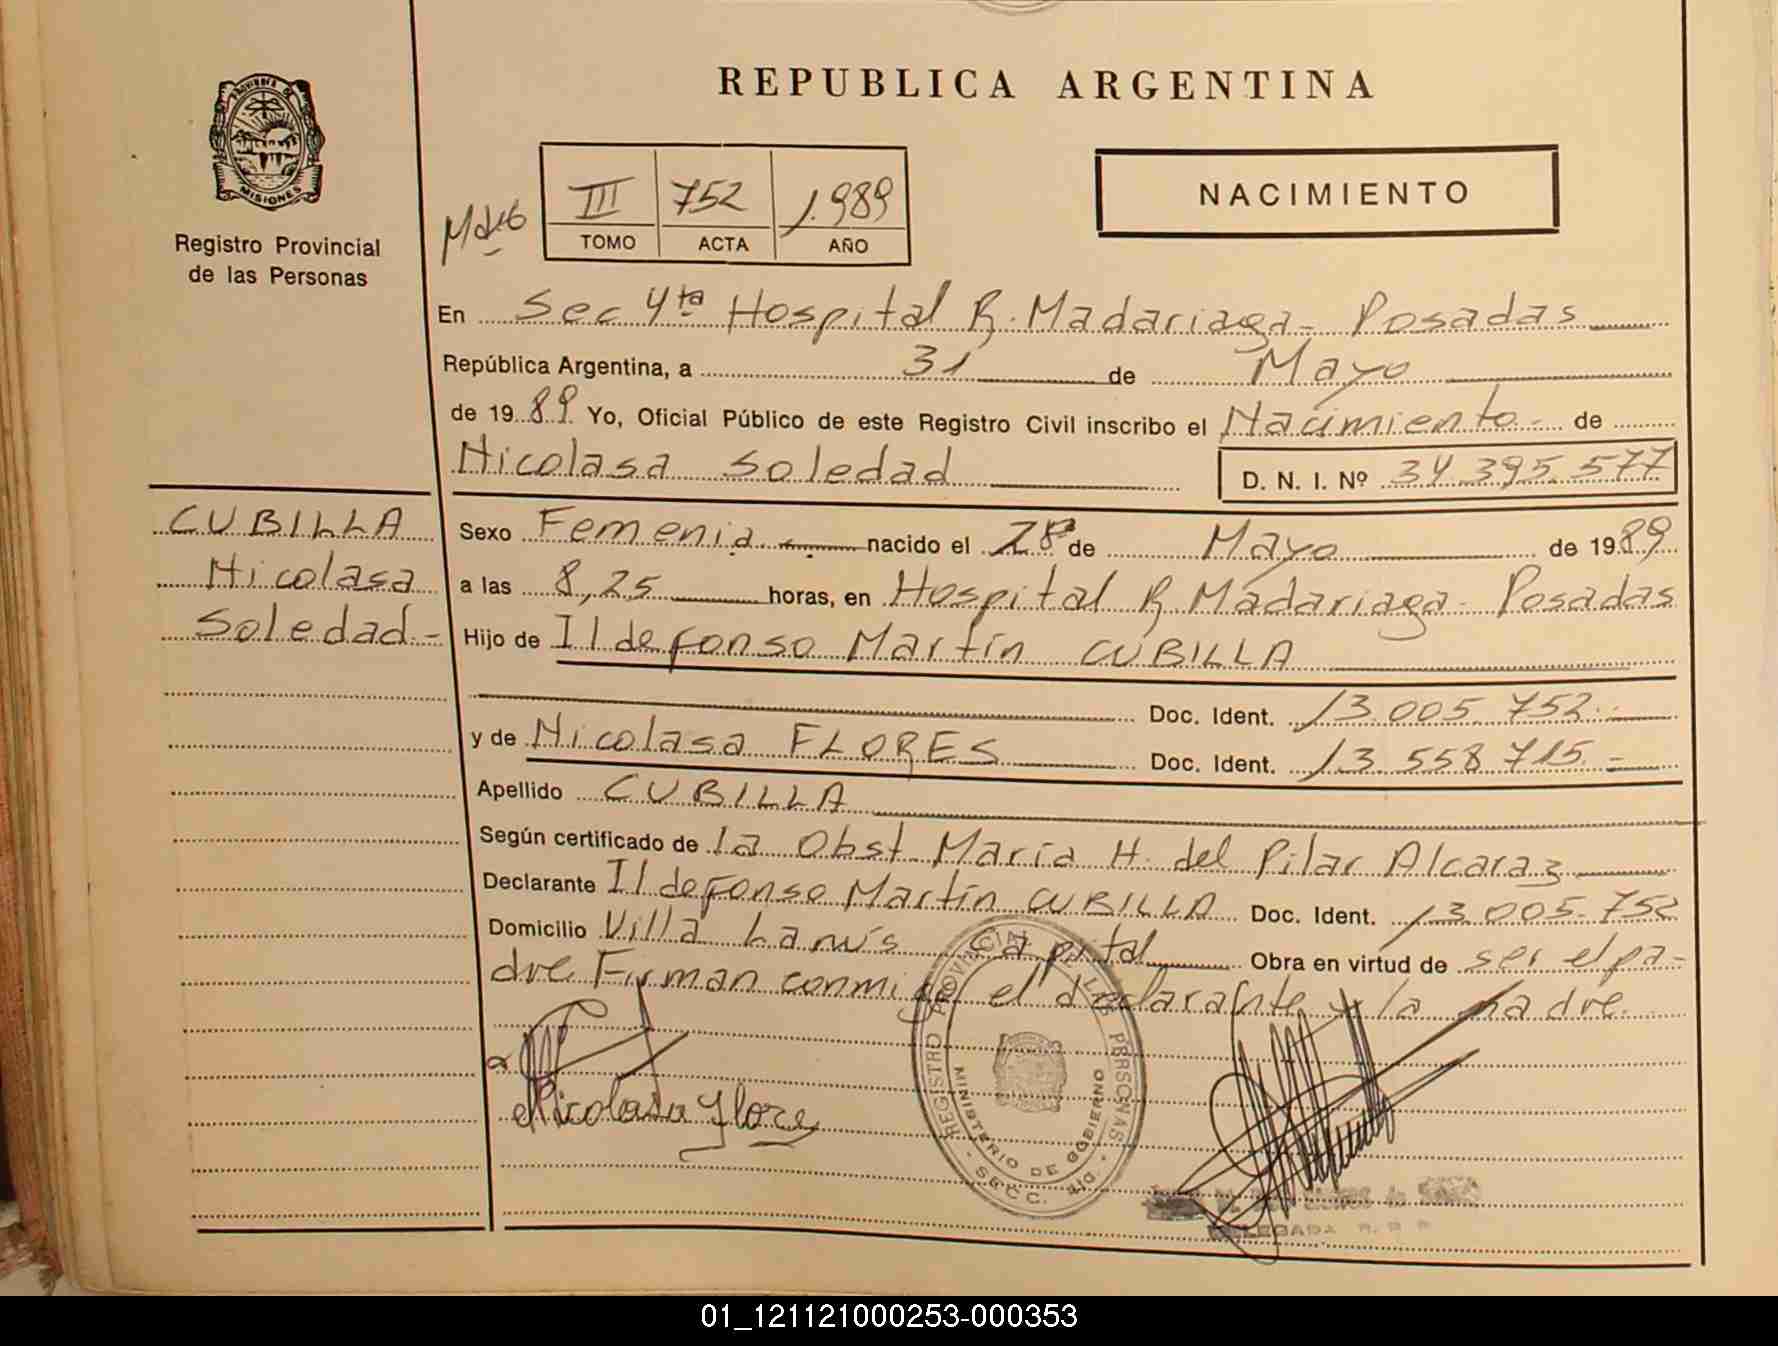 REPUBLICA ARGENTINA
PROVINCIA DE
MISIONES
Registro Provincial
de las Personas
III 752 1.989
TOMO ACTA AÑO
NACIMIENTO
En Sec 4ta Hospital R. Madariaga - Posadas
República Argentina, a 31 de Mayo
de 1989 Yo, Oficial Público de este Registro Civil inscribo el Nacimiento - de
Nicolasa Soledad D. N. I. Nº 34.395.577
CUBILLA
Nicolasa
Soledad -
Sexo Femenia nacido el 28 de Mayo de 1989
a las 8,25 horas, en Hospital R Madariaga - Posadas
Hijo de Ildefonso Martín CUBILLA
Doc. Ident. 13.005.752 -
y de Nicolasa FLORES Doc. Ident. 13.558.715. -
Apellido CUBILLA
Según certificado de la Obst. María H. del Pilar Alcaraz
Declarante Ildefonso Martín CUBILLA Doc. Ident. 13.005.752
Domicilio Villa Lanús Capital Obra en virtud de ser el pa-
dre. Firman conmigo el declarante y la madre.
Nicolasa Flores
REGISTRO PROVINCIAL DE LAS PERSONAS
MINISTERIO DE GOBIERNO
DELEGADA R. P. P.
01_121121000253-000353